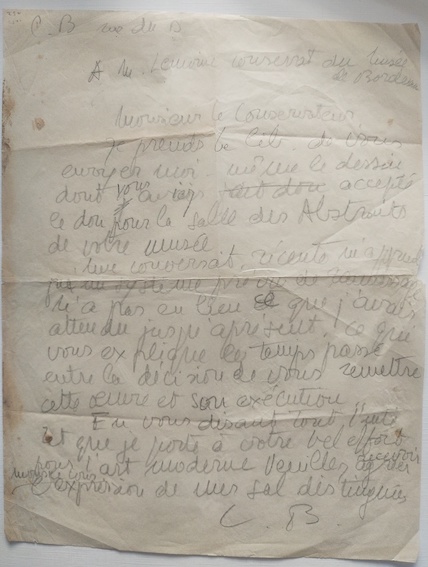 A M. Lemoine conservat du Musée
de Bordeaux
Monsieur le Conservateur
je prends la lib de vous
envoyer moi-même le dessin
dont vous aviez accepté
ce don pour la salle des Abstraits
de votre musée
Une conversat. récente m'apprend
qu'un système prévu de
n'a pas eu lieu ce que j'avais
attendu jusqu'à présent. Ce qui
vous explique le temps passé
entre la décision de vous remettre
cette œuvre et son exécution
En vous disant tout l'inté
rêt que je porte à votre bel effort
pour l'art moderne Veuillez
l'expression de mes sal distinguées
C. B.